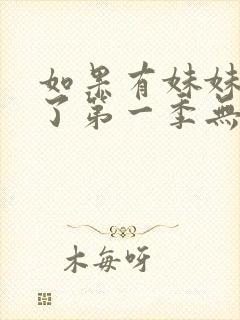 如果有妹妹
了第一季無
木每呀